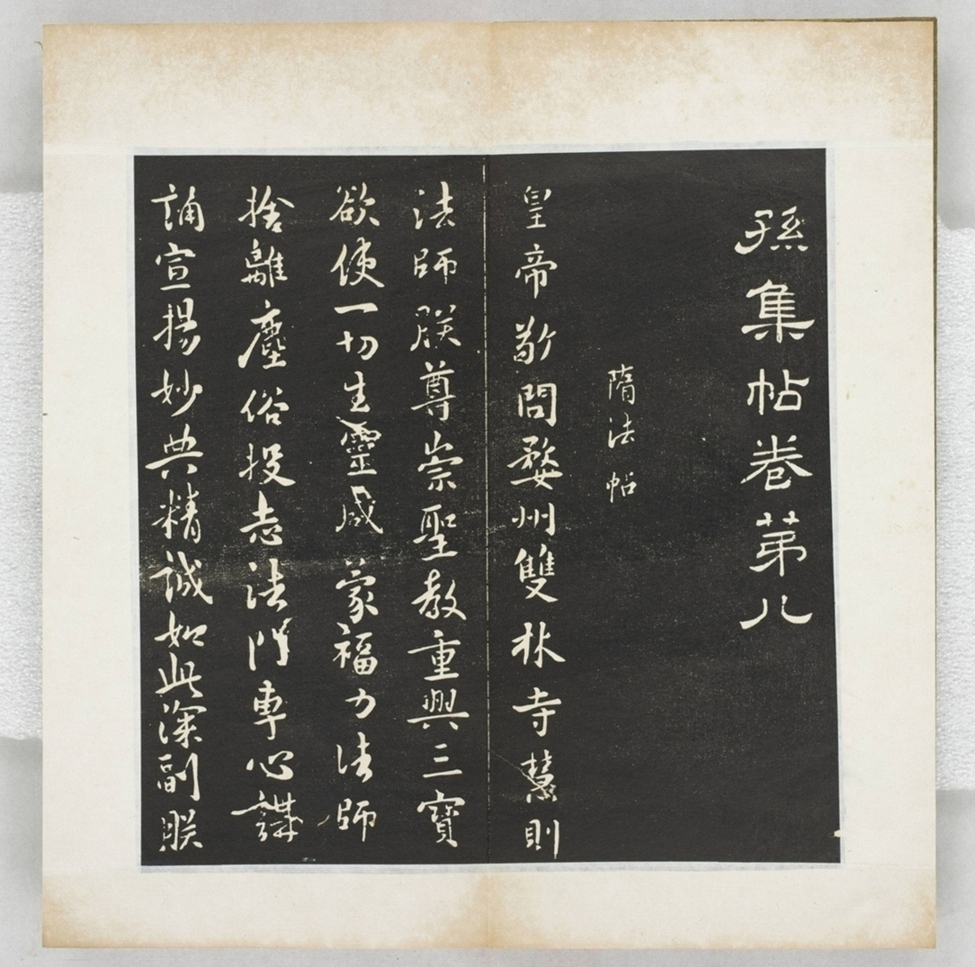 孫集帖卷苐八
隋法帖
皇帝敬問婺州雙林寺慧則
法師朕尊崇聖教重興三寶
欲使一切生靈咸蒙福力法師
捨離塵俗投志法門專心講
誦宣揚妙典精誠如此深副朕